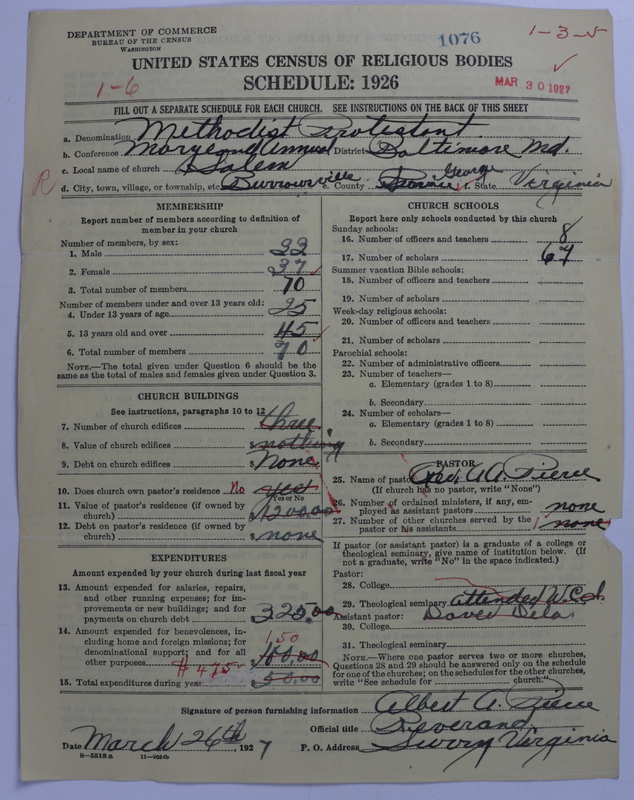 DEPARTMENT OF COMMERCE
BUREAU OF THE CENSUS
WASHINGTON
1076
1-3-5
UNITED STATES CENSUS OF RELIGIOUS BODIES
1-6
SCHEDULE: 1926
MAR 30 1927
FILL OUT A SEPARATE SCHEDULE FOR EACH CHURCH. SEE INSTRUCTIONS ON THE BACK OF THIS SHEET
a. Denomination Methodist Protestant
b. Conference Annual District Baltimore Md.
c. Local name of church Salem
R
d. City, town, village, or township, etc. Burrowsville e. County Prince George f. State Virginia
MEMBERSHIP
Report number of members according to definition of
member in your church
Number of members, by sex:
1. Male 33
2. Female 37
3. Total number of members 70
Number of members under and over 13 years old:
4. Under 13 years of age 25
5. 13 years old and over 45
6. Total number of members 70
NOTE.—The total given under Question 6 should be
the same as the total of males and females given under Question 3.
CHURCH BUILDINGS
See instructions, paragraphs 10 to 12
7. Number of church edifices three
8. Value of church edifices $ nothing
9. Debt on church edifices $ None
10. Does church own pastor's residence? No yes
Yes or No
11. Value of pastor's residence (if owned by
church) $
12. Debt on pastor's residence (if owned by
church) $ none
EXPENDITURES
Amount expended by your church during last fiscal year
13. Amount expended for salaries, repairs,
and other running expenses; for im-
provements or new buildings; and for
payments on church debt $ 325.00
14. Amount expended for benevolences, in-
cluding home and foreign missions; for
denominational support; and for all
other purposes $ 100.00
150
$475
15. Total expenditures during year $ 50.00
CHURCH SCHOOLS
Report here only schools conducted by this church
Sunday schools:
16. Number of officers and teachers 8
17. Number of scholars 67
Summer vacation Bible schools:
18. Number of officers and teachers
19. Number of scholars
Week-day religious schools:
20. Number of officers and teachers
21. Number of scholars
Parochial schools:
22. Number of administrative officers
23. Number of teachers—
a. Elementary (grades 1 to 8)
b. Secondary
24. Number of scholars—
a. Elementary (grades 1 to 8)
b. Secondary
PASTOR
25. Name of pastor Rev. A. A. Pierce
(If church has no pastor, write "None")
26. Number of ordained ministers, if any, em-
ployed as assistant pastors none
27. Number of other churches served by the
pastor or his assistants none
If pastor (or assistant pastor) is a graduate of a college or
theological seminary, give name of institution below. (If
not a graduate, write "No" in the space indicated.)
Pastor:
28. College
29. Theological seminary attended W.
Assistant pastor: Dover Dela
30. College
31. Theological seminary
NOTE.—Where one pastor serves two or more churches,
Questions 28 and 29 should be answered only on the schedule
for one of the churches; on the schedules for the other churches,
write "See schedule for church."
Signature of person furnishing information Albert A. Pierce
Official title Reverand
Date March 26th, 1927 P. O. Address Virginia
8-5518a 11-9034b